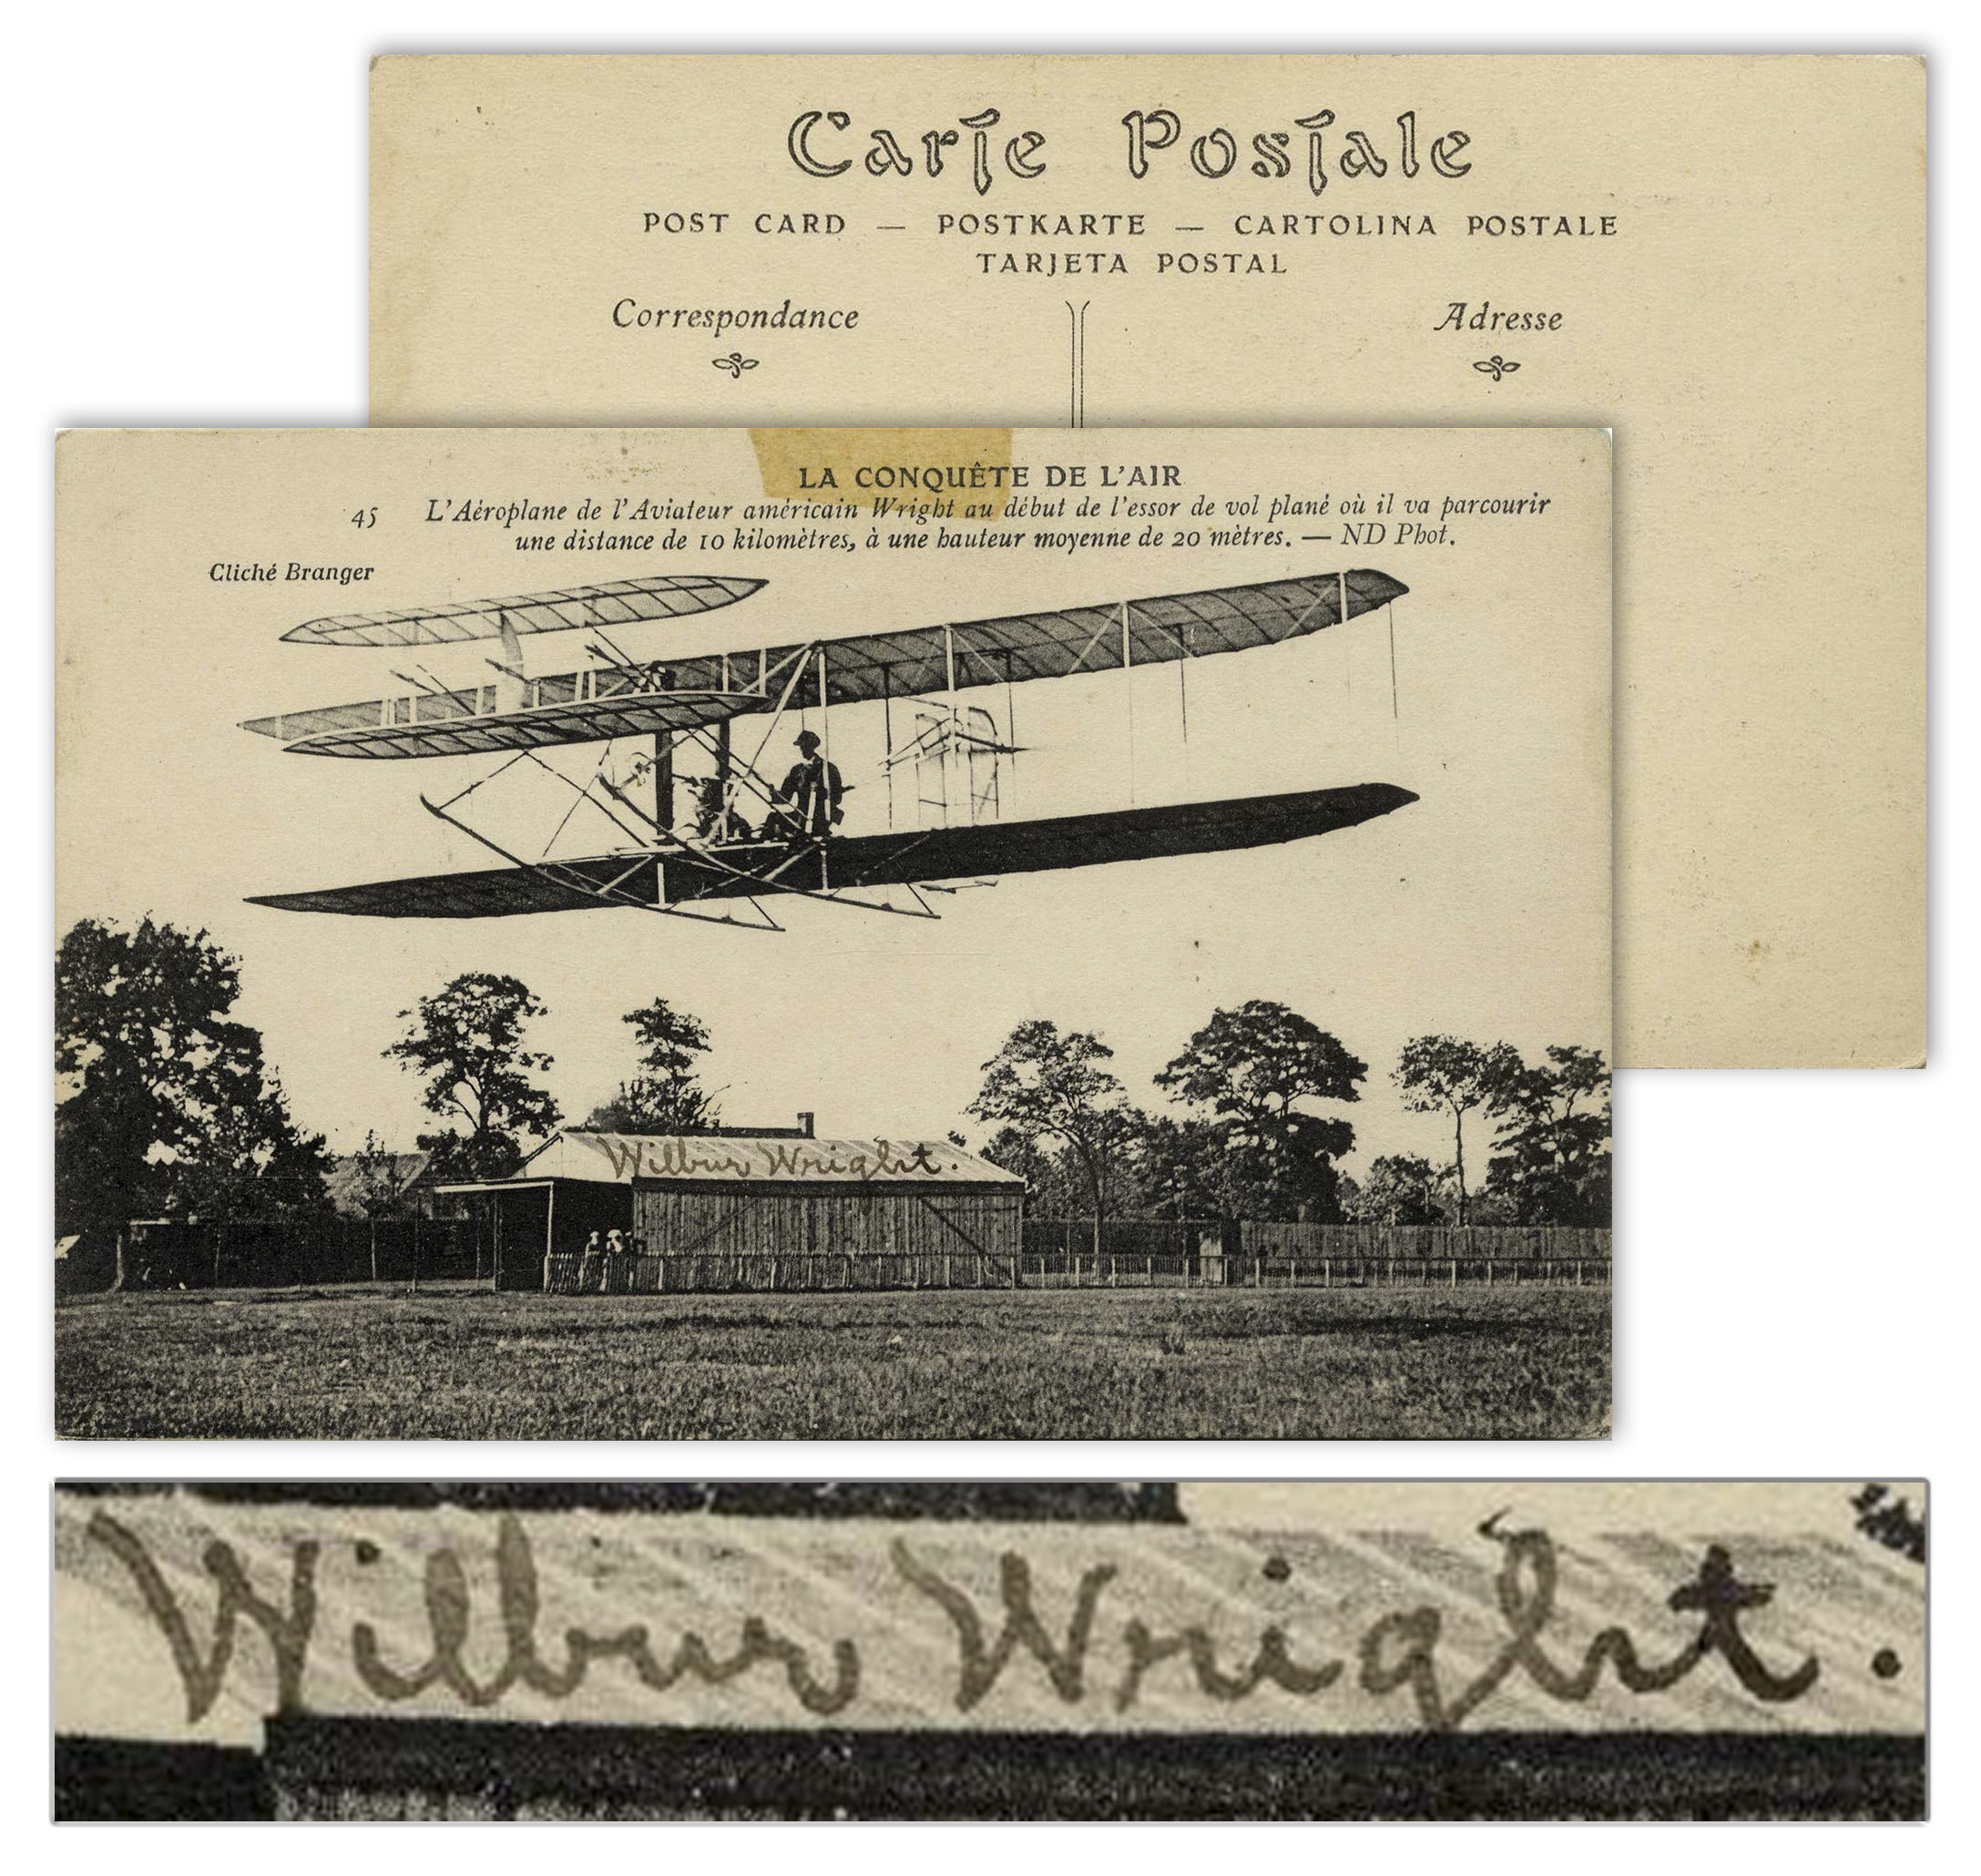 Carte Postale
POST CARD — POSTKARTE — CARTOLINA POSTALE
TARJETA POSTAL
Correspondance
Adresse
LA CONQUÊTE DE L'AIR
45 L'Aéroplane de l'Aviateur américain Wright au début de l'essor de vol plané où il va parcourir
une distance de 10 kilomètres, à une hauteur moyenne de 20 mètres. — ND Phot.
Cliché Branger
Wilbur Wright.
Wilbur Wright.